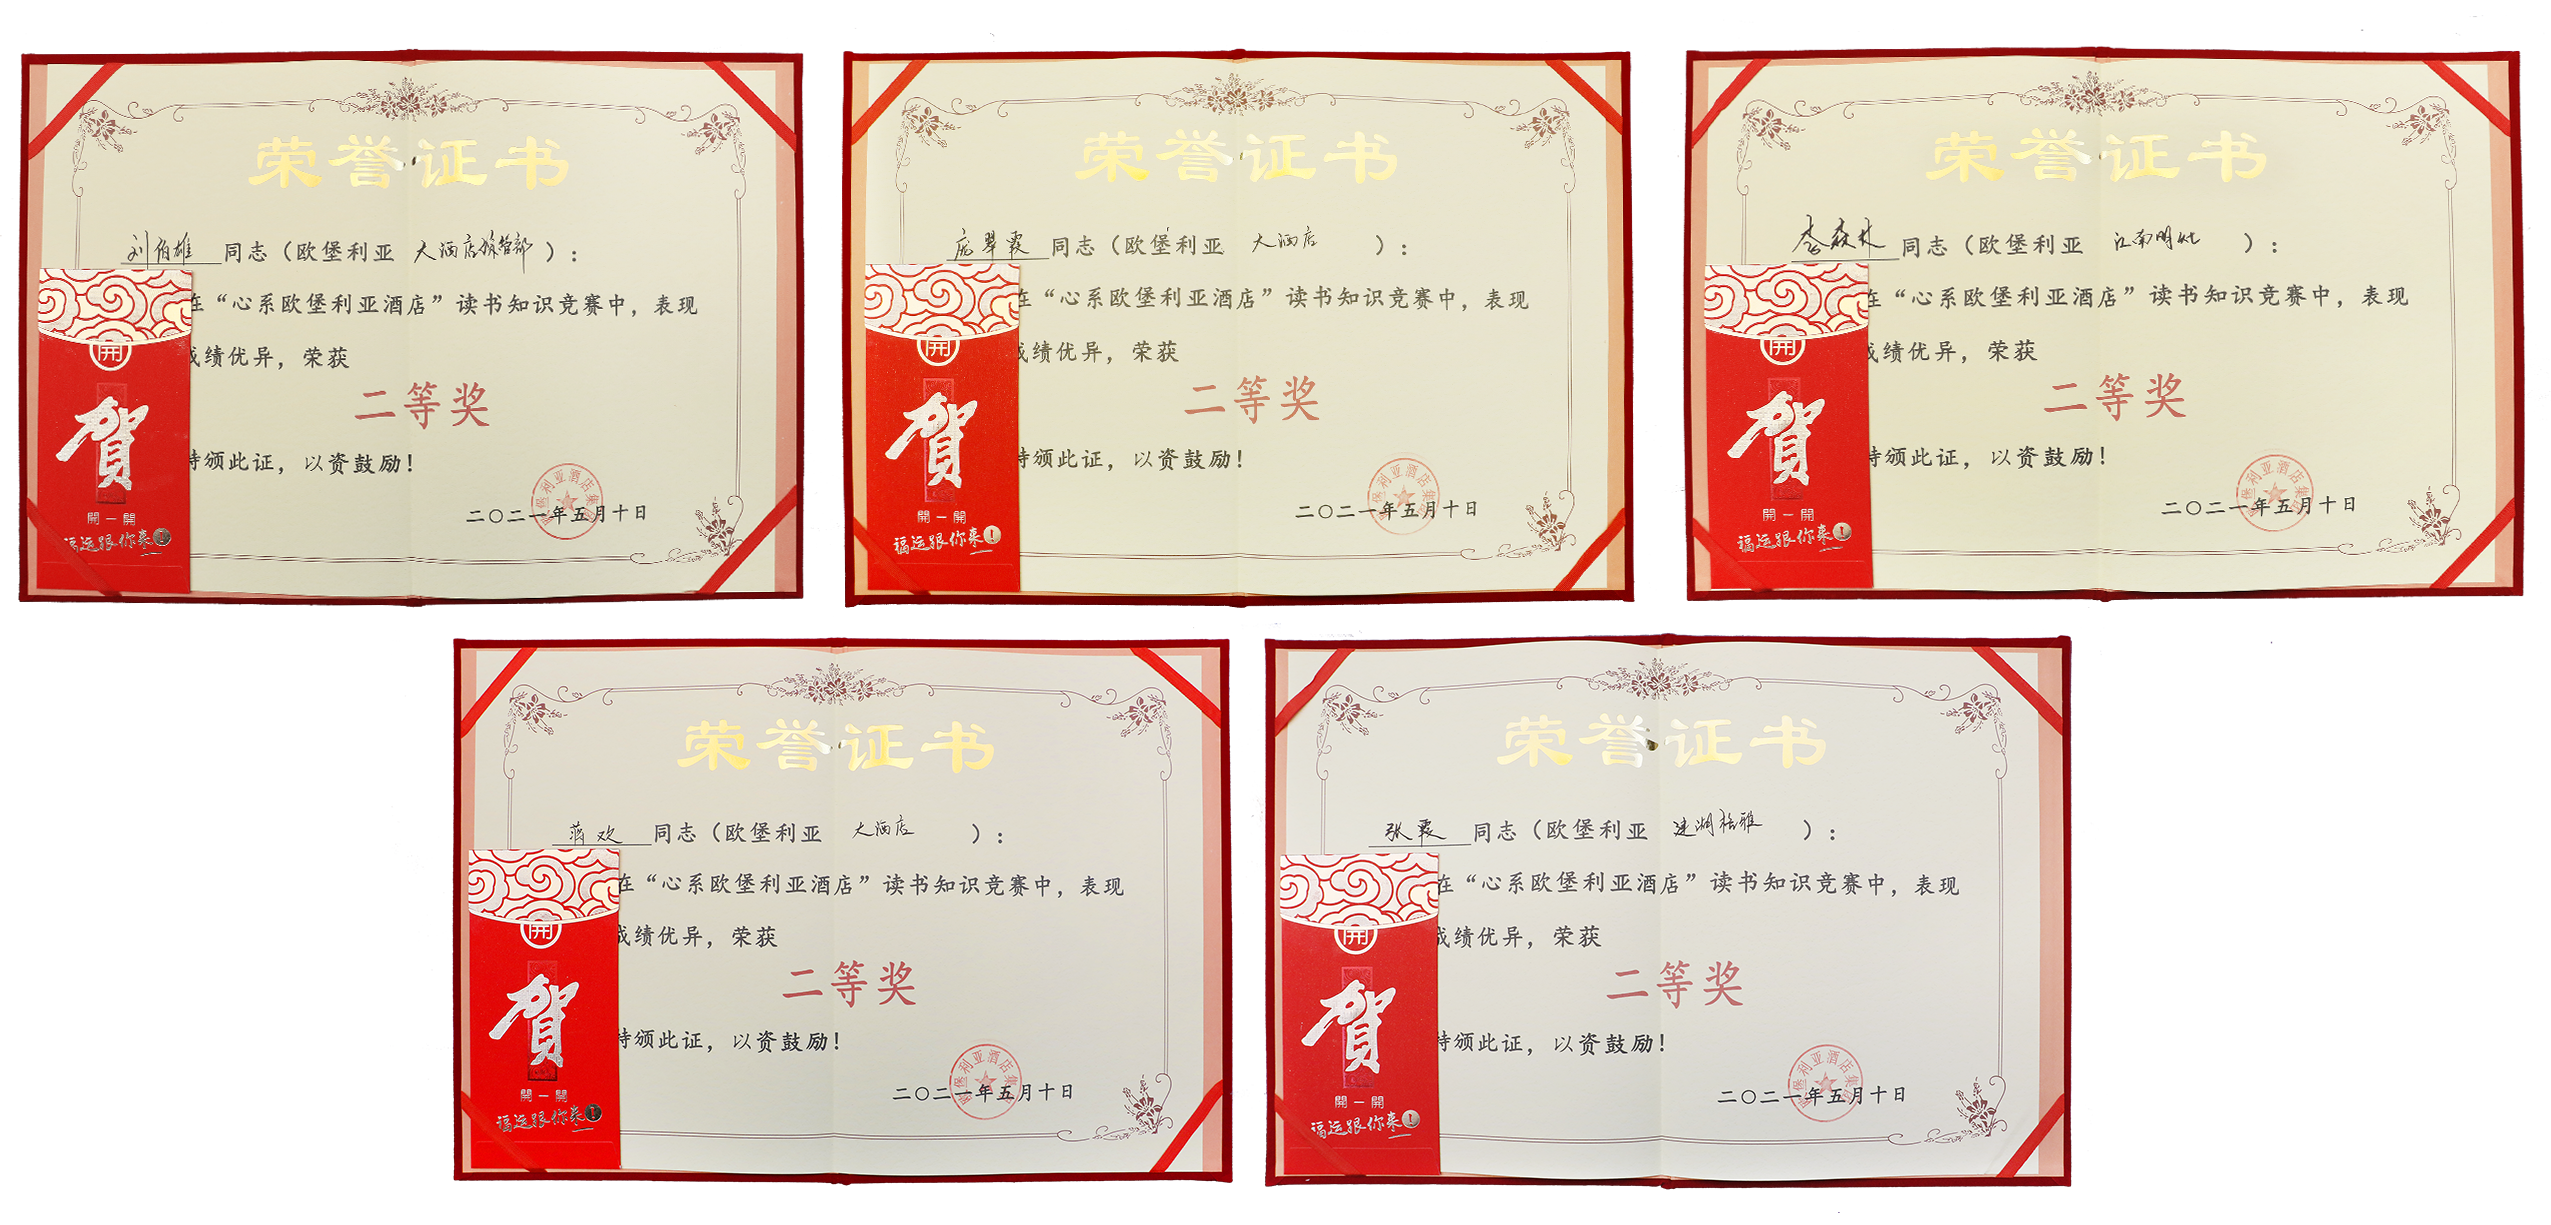 荣誉证书
刘伯雄 同志（欧堡利亚 大酒店综管部）：
在“心系欧堡利亚酒店”读书知识竞赛中，表现
成绩优异，荣获
二等奖
特颁此证，以资鼓励！
二〇二一年五月十日
堡利亚酒店集
開
賀
開一開
福运跟你来
荣誉证书
庞翠霞 同志（欧堡利亚 大酒店）：
在“心系欧堡利亚酒店”读书知识竞赛中，表现
成绩优异，荣获
二等奖
特颁此证，以资鼓励！
二〇二一年五月十日
堡利亚酒店集
開
賀
開一開
福运跟你来！
荣誉证书
森林 同志（欧堡利亚 江南明）：
在“心系欧堡利亚酒店”读书知识竞赛中，表现
成绩优异，荣获
二等奖
特颁此证，以资鼓励！
二〇二一年五月十日
堡利亚酒店集
開
賀
開一開
福运跟你来！
荣誉证书
蒋欢 同志（欧堡利亚 大酒店）：
在“心系欧堡利亚酒店”读书知识竞赛中，表现
成绩优异，荣获
二等奖
特颁此证，以资鼓励！
二〇二一年五月十日
堡利亚酒店集
開
賀
開一開
福运跟你来！
荣誉证书
张霞 同志（欧堡利亚 湖格雅）：
在“心系欧堡利亚酒店”读书知识竞赛中，表现
成绩优异，荣获
二等奖
特颁此证，以资鼓励！
二〇二一年五月十日
堡利亚酒店集
開
賀
開一開
福运跟你来！